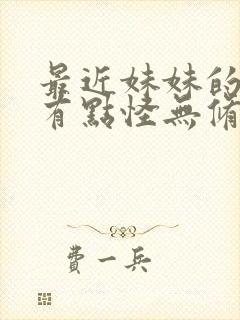 最近妹妹的
有點怪無脩
費一兵